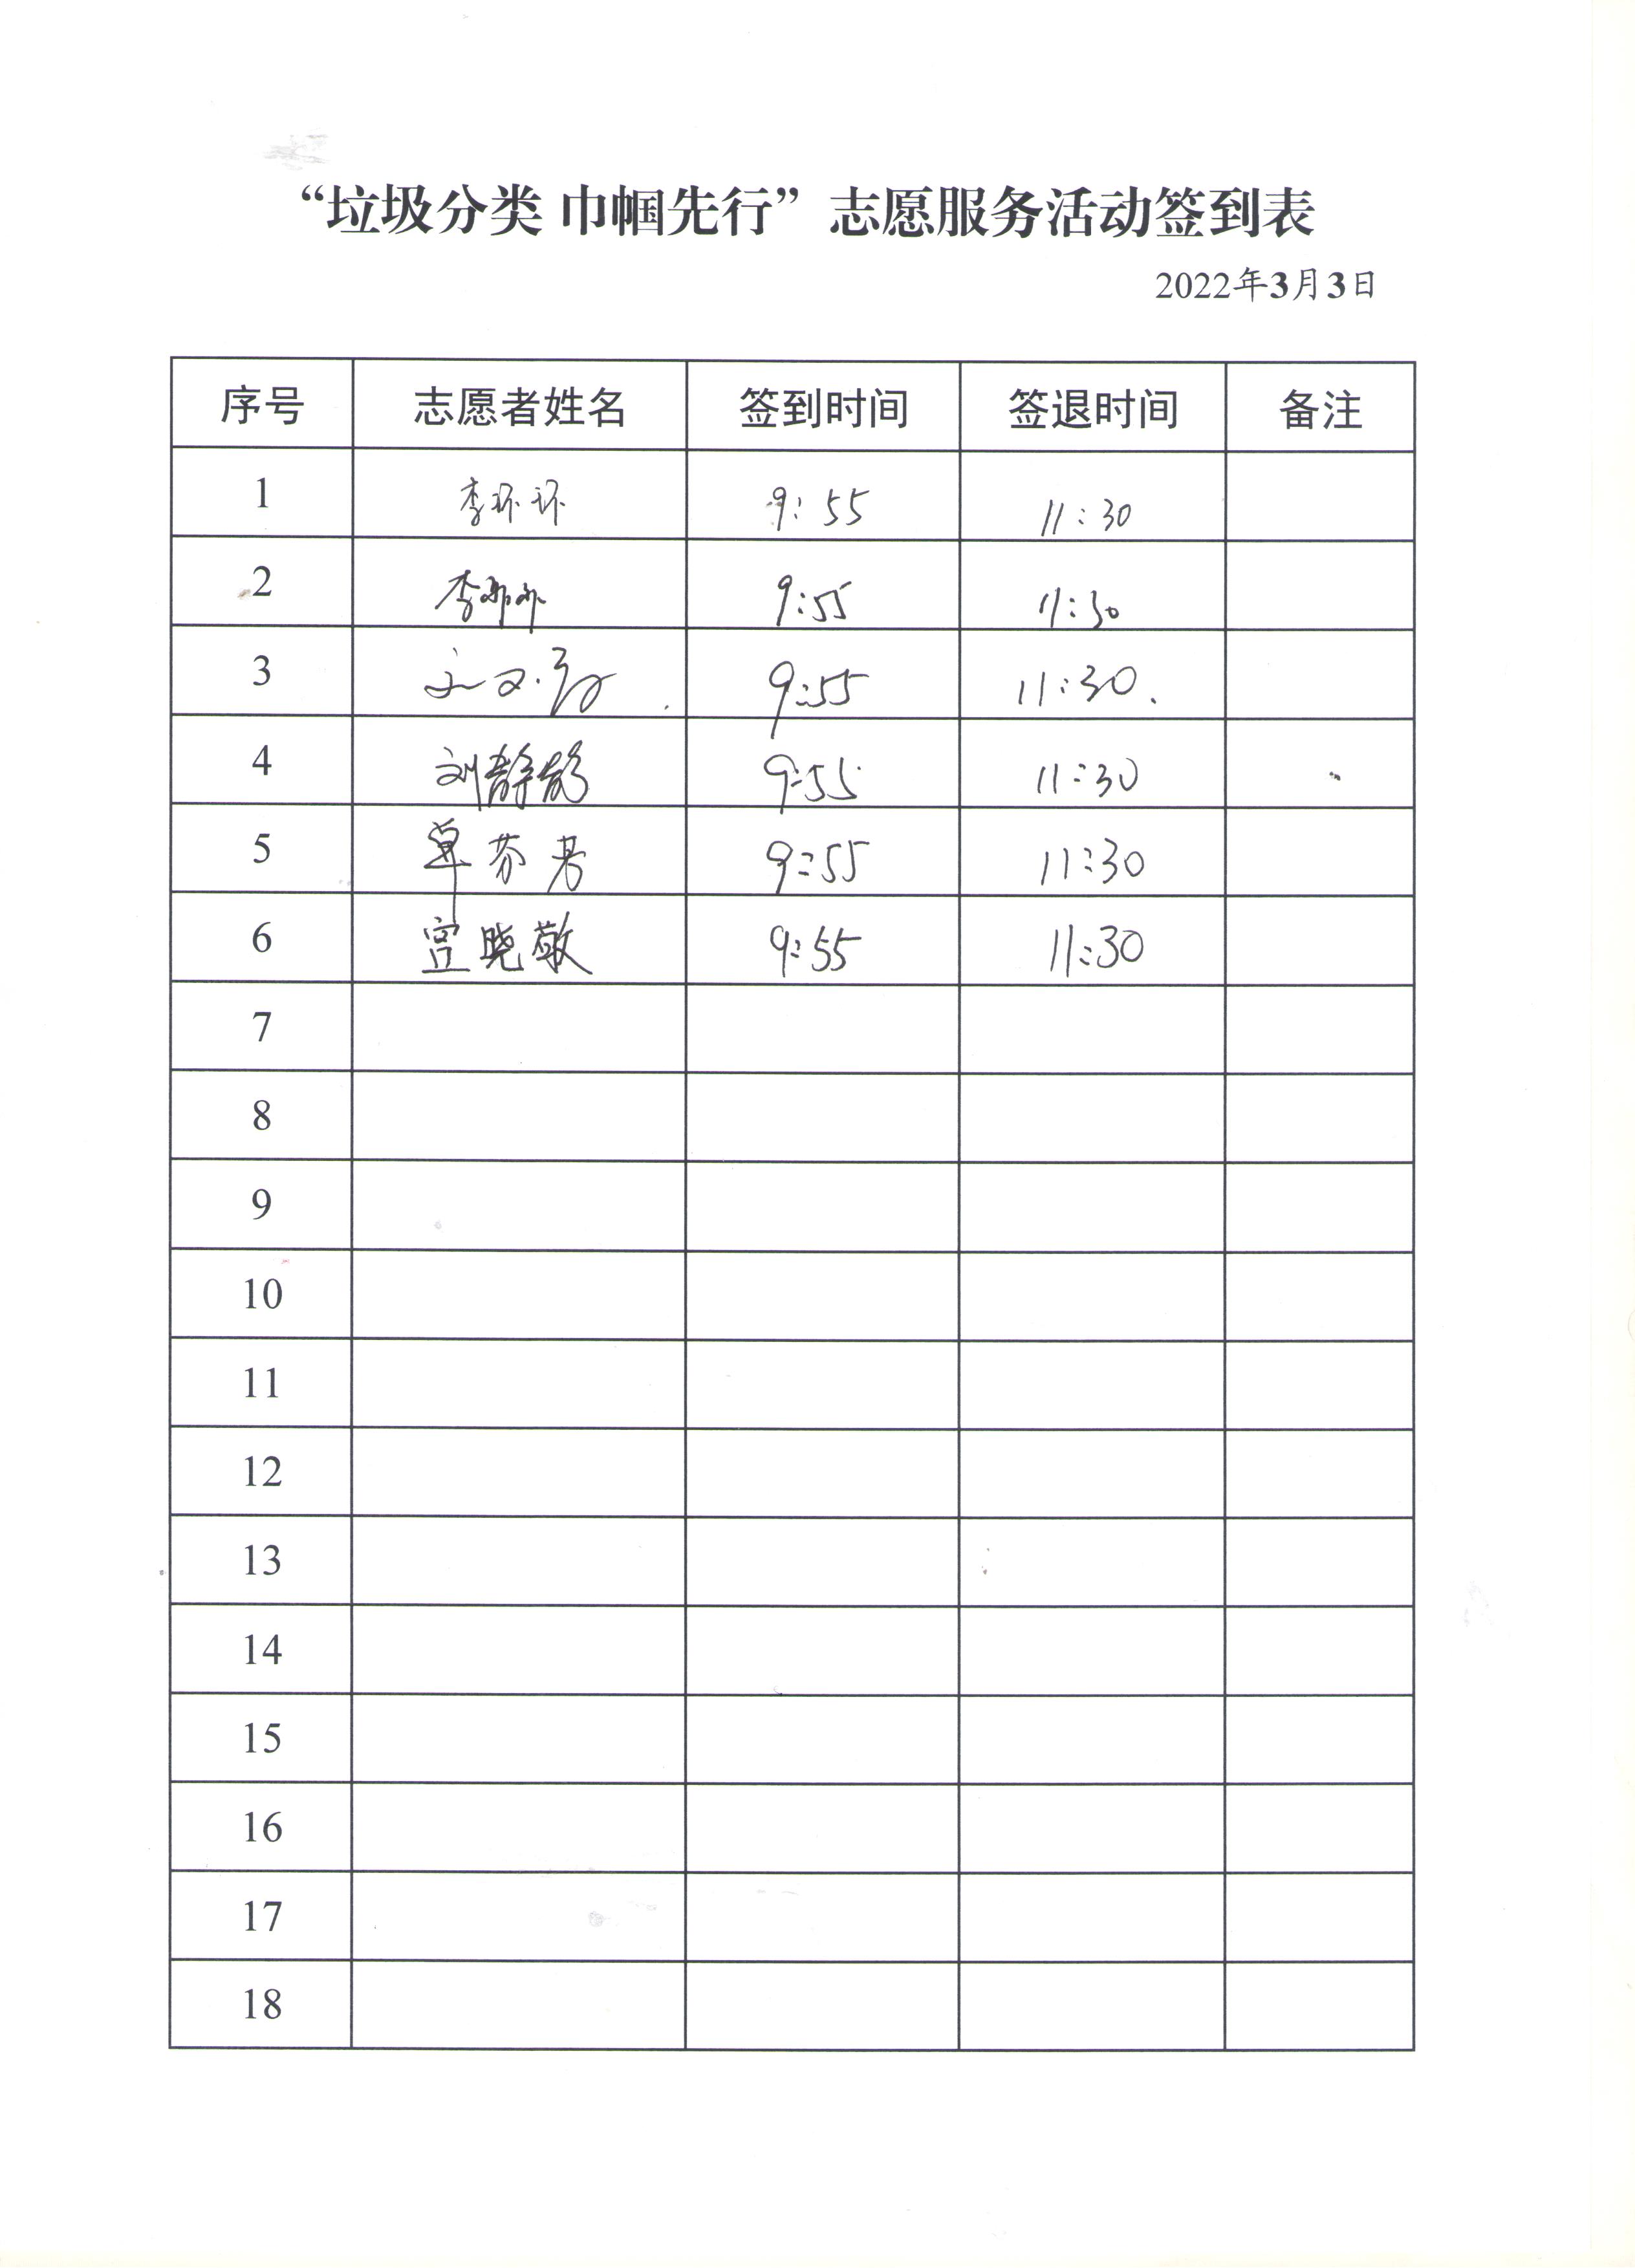 “垃圾分类 巾帼先行”志愿服务活动签到表
2022年3月3日
序号 志愿者姓名 签到时间 签退时间 备注
1 李环环 9:55 11:30
2 李 9:55 11:30
3 9:55 11:30.
4 刘静 9:55 11:30
5 单芬 9:55 11:30
6 晓敬 9:55 11:30
7
8
9
10
11
12
13
14
15
16
17
18